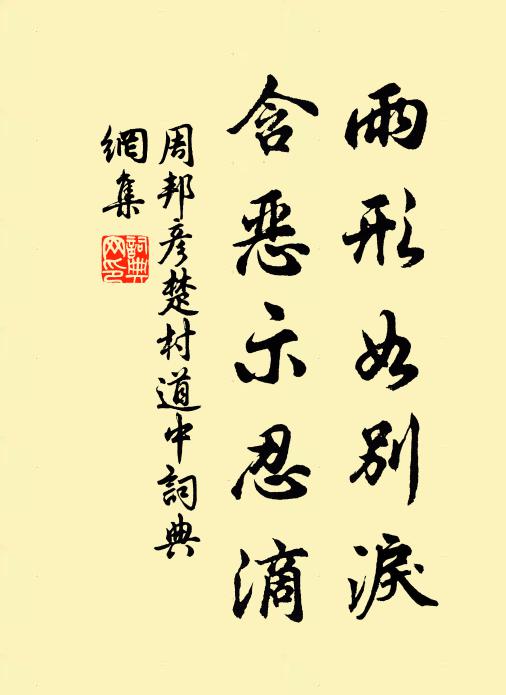 雨形如別淚
含惡示忍滴
周邦彥楚村道中詞典
網集
詞典網印